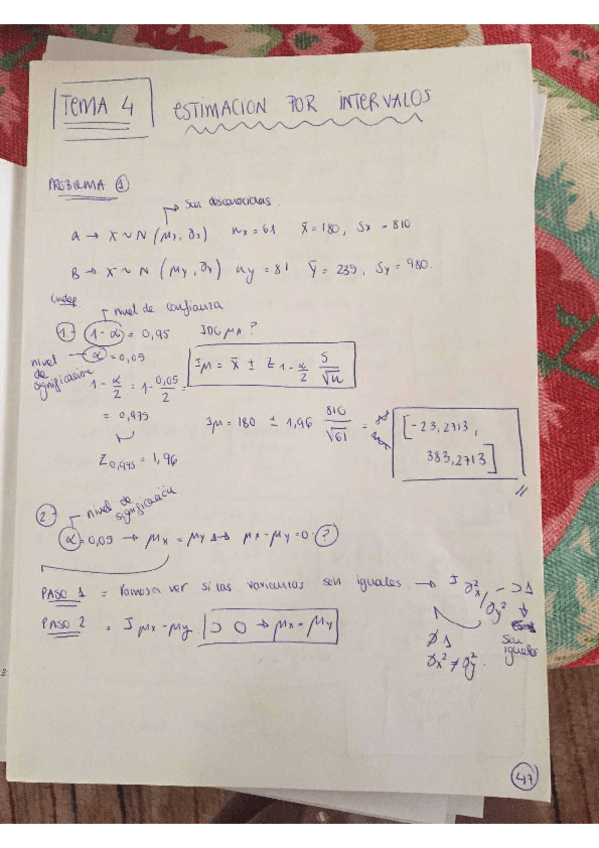 TEMA 4 ESTIMACION POR INTERVALOS
PROBLEMA 1
Son desconocidas
A → X ~ N (μx, σx) nx = 61 x̄ = 180, Sx = 810
B → X ~ N (μy, σx) ny = 81 ȳ = 239, Sy = 980.
indep
nivel de confianza
1.- 1-α = 0,95 IDC μA ?
nivel de significacion α = 0,05
Iμ = x̄ ± t 1-α/2 S/√n
1-α/2 = 1-0,05/2 =
= 0,975
Iμ = 180 ± 1,96 810/√61 = [-23,2713, 383,2713]
Z0,975 = 1,96
nivel de significación
2.- α = 0,05 → μx = μy ⇒ μx-μy = 0 ?
PASO 1 = Vamos a ver si las varianzas son iguales. → I σx²/σy² → ⊃ 1
son iguales
PASO 2 = I μx-μy. ⊃ 0 → μx = μy
∌ 1
σx² ≠ σy².
47